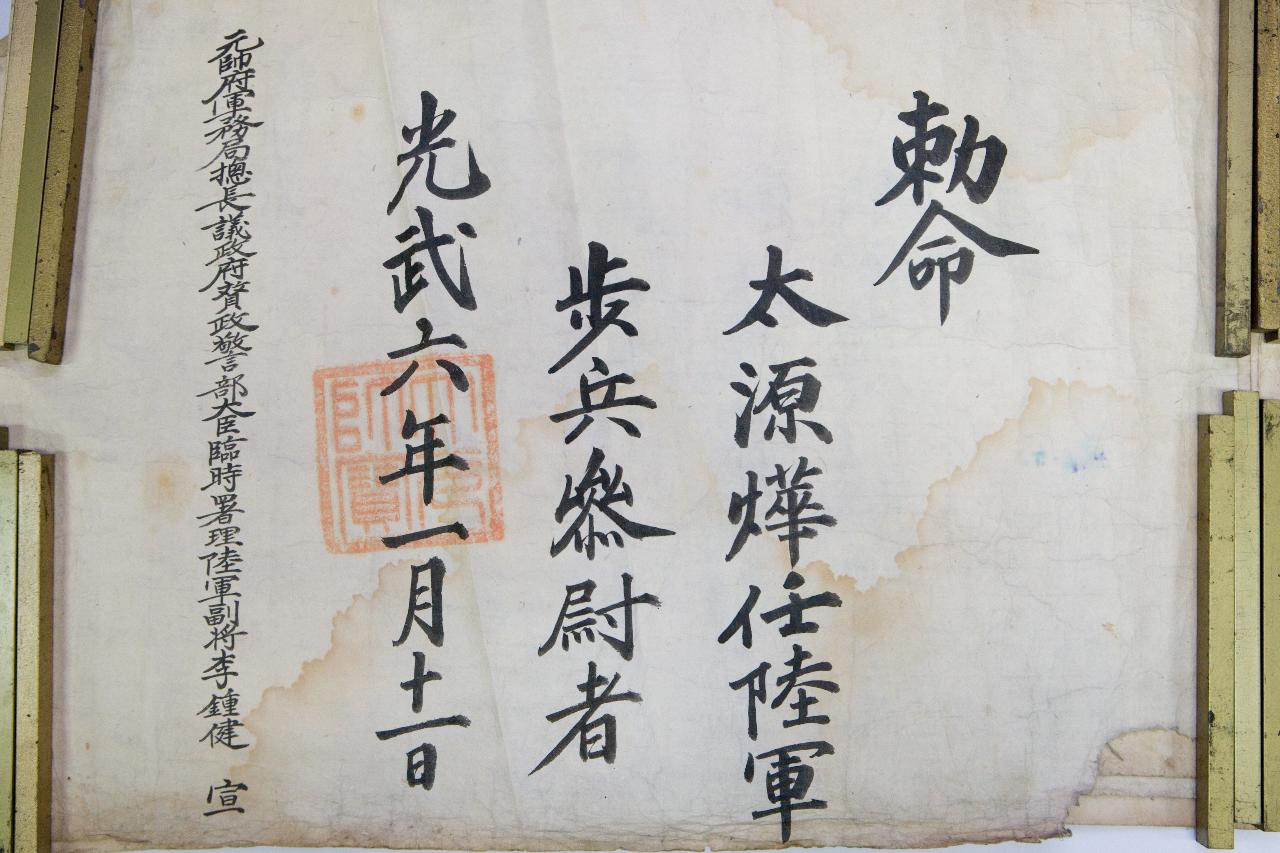 勅命
太源燁任陸軍
步兵參尉者
光武六年一月十一日
元帥府軍務局摠長議政府贊政警部大臣臨時署理陸軍副將李鍾健 宣